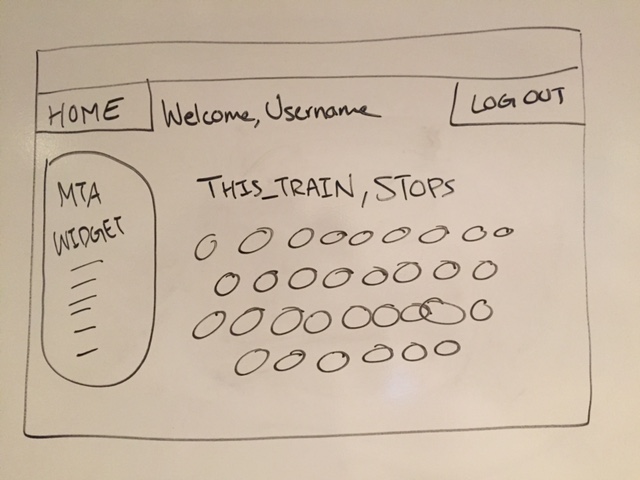 HOME
Welcome, Username
LOG OUT
MTA
WIDGET
THIS_TRAIN, STOPS